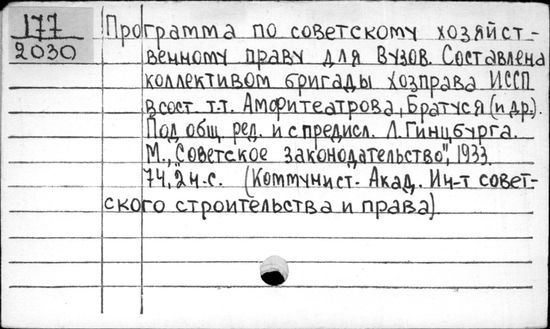 177
2030
Программа по советскому хозяйст-
венному праву для Вузов. Составлена
коллективом бригады хозправа ИССП
в сост. т.т. Амфитеатрова, Братуся (и др.).
Под общ. ред. и с предисл. Л. Гинцбурга.
М., "Советское законодательство", 1933.
74, 2 н. с. (Коммунист. Акад. Ин-т совет-
ского строительства и права).